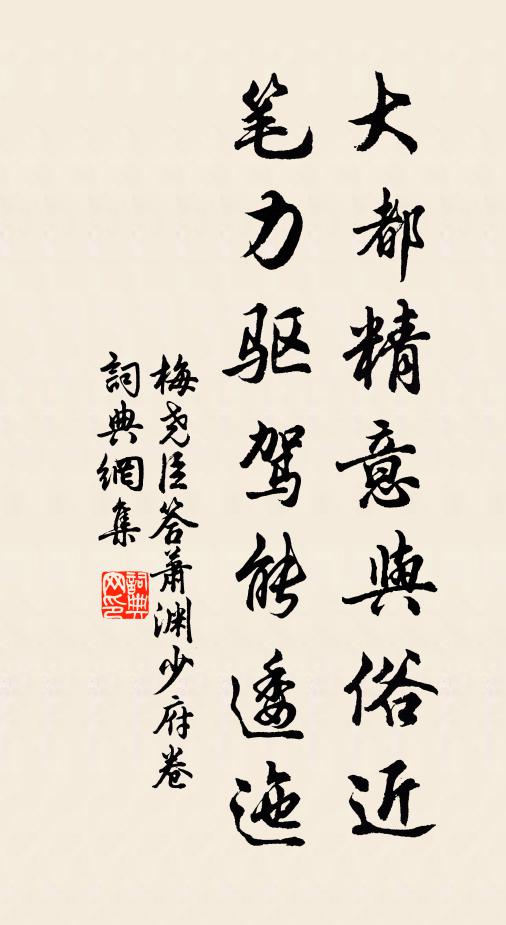 大都精意與俗近
笔力驱驾能逶迤
梅尧臣答萧渊少府卷
詞典網集
詞典网印